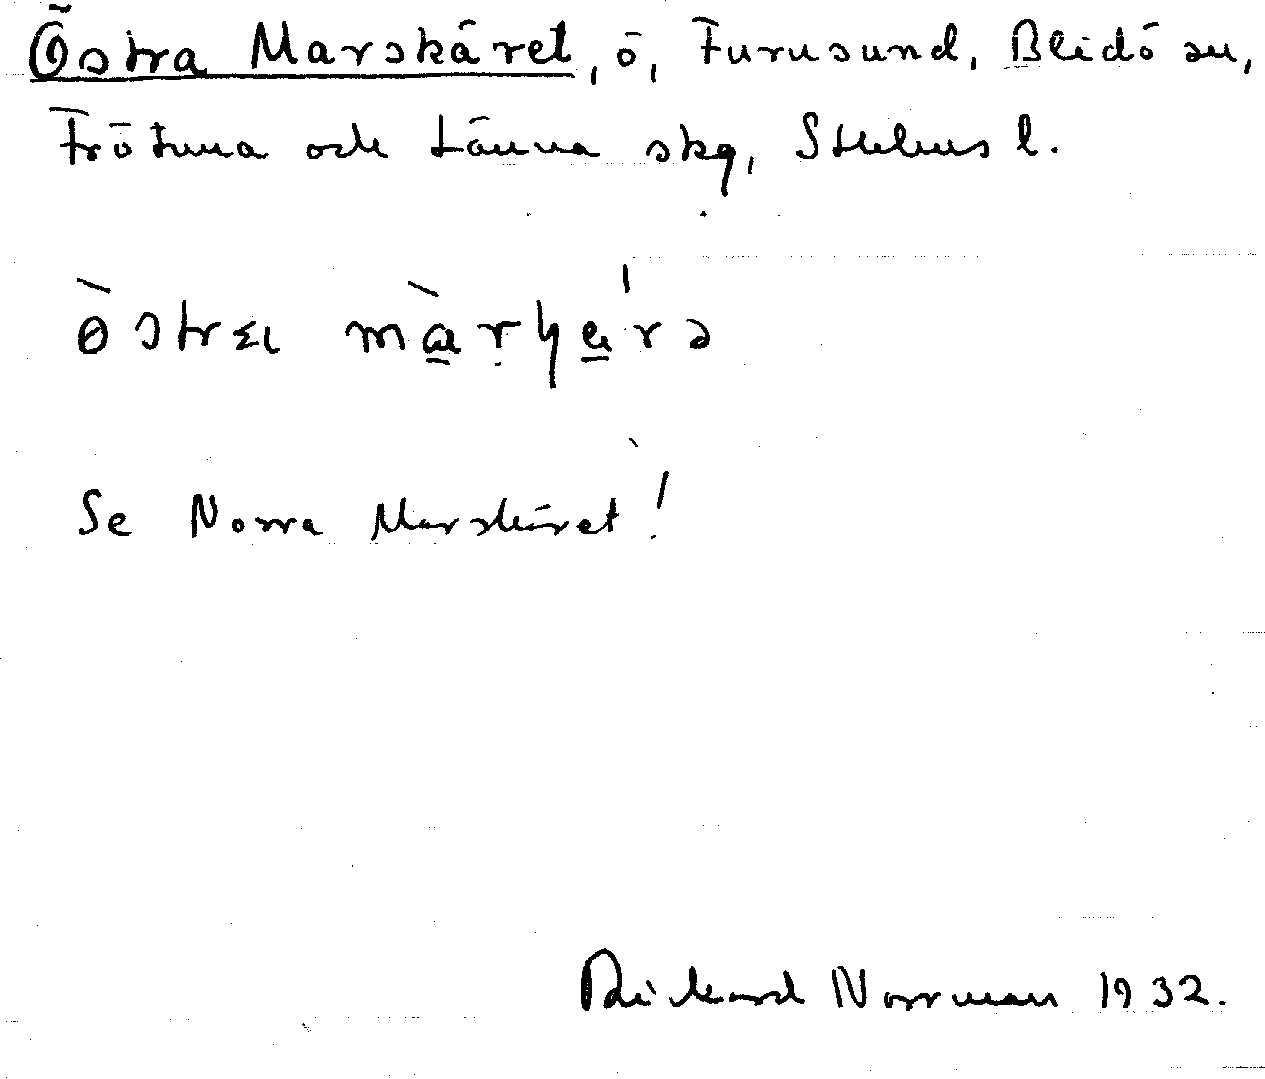 Östra Marskäret, ö, Furusund, Blidö sn,
Frötuna och Länna skg, Sthlms l.
Se Norra Marskäret!
Rickard Norrman 1932.